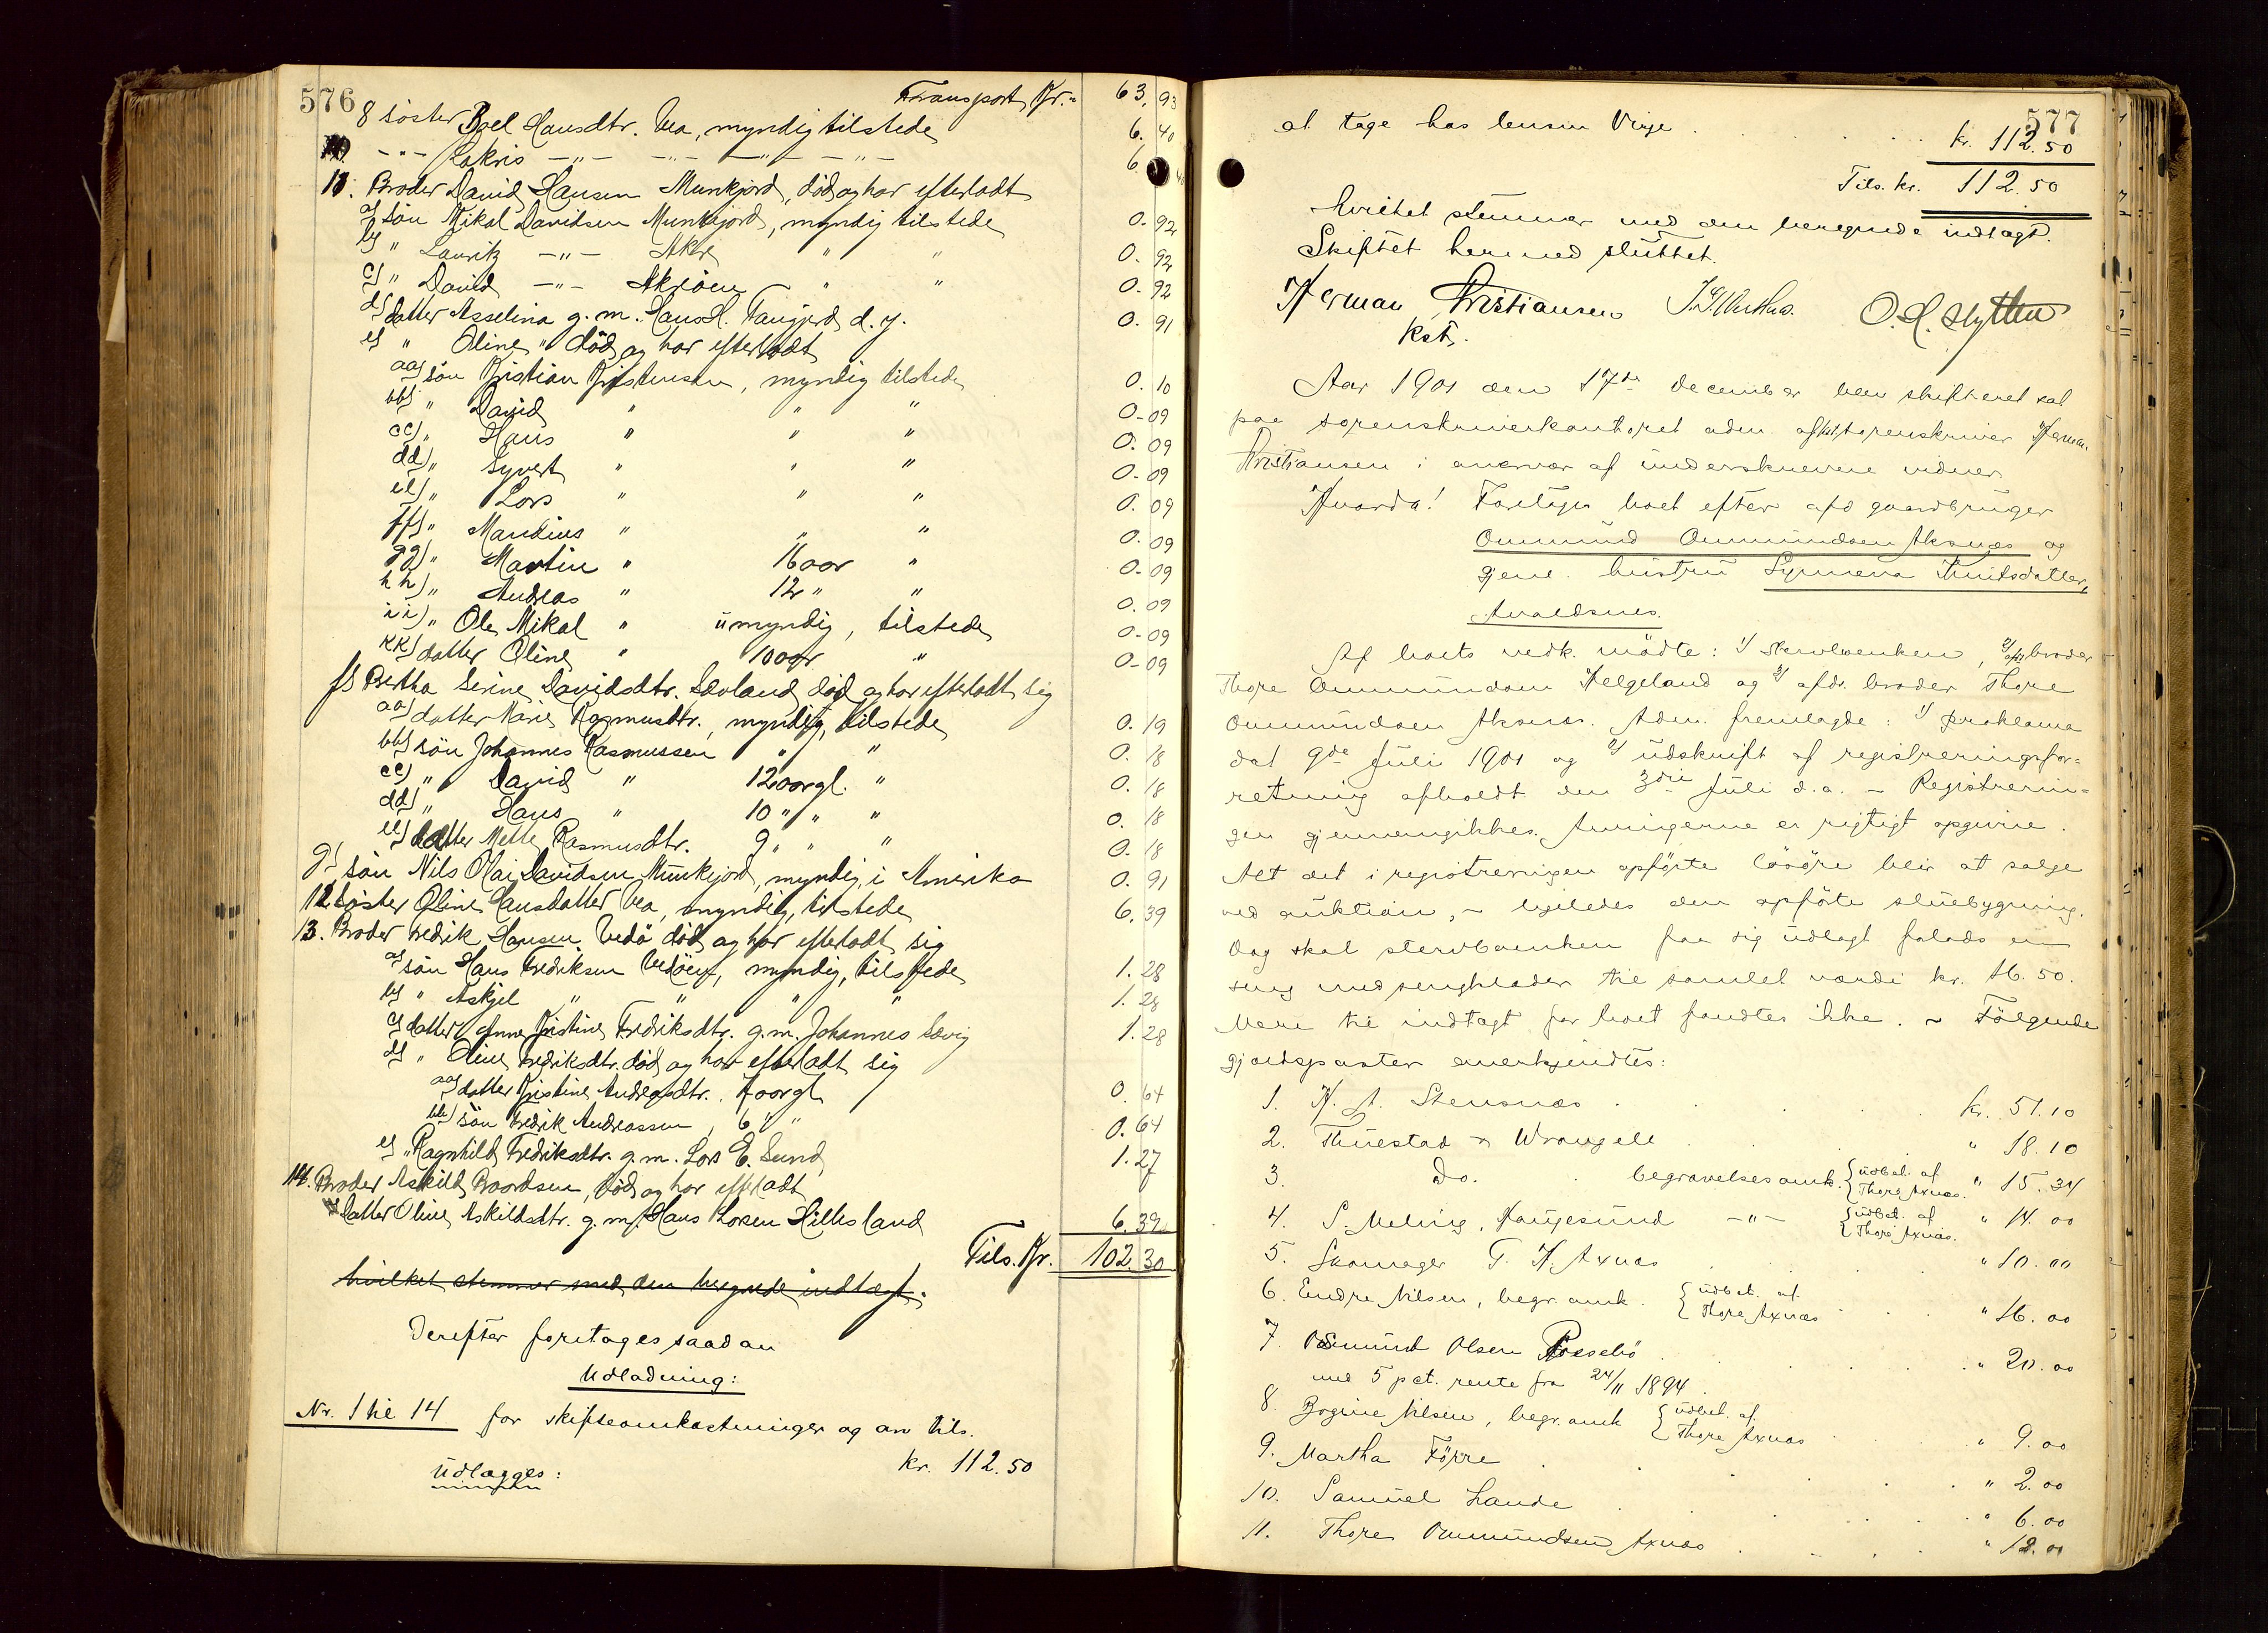 576
Transport Kr. 63,93
8 söster Boel Hansdtr. Vea, myndig tilstede 6.40
10. -"- Lakris -"- -"- -"- -"- 6.
11. Broder David Hansen Munkjord, död og har efterladt
a) sön Mikal Davidsen Munkejord, myndig tilstede 0.92
b) " Lauritz -"- Aker " " 0.92
c) " David -"- Akröen " " 0.92
d) datter Asselina g.m. Hans H. d.y. 0.91
e) " Oline " död og har efterladt
aa) sön Kristian Kristensen, myndig tilstede 0.10
bb) " David " " " 0.09
cc) " Hans " " " 0.09
dd) " Syvert " " " 0.09
ee) " Lars " " " 0.09
ff) " Mandius " " " 0.09
gg) " Martin " 16 aar " 0.09
hh) " Andreas " 12 " " 0.09
ii) " Ole Mikal " umyndig, tilstede 0.09
kk) datter Oline " 10 aar " 0.09
f) Bertha Serine Davidsdtr. Sævland död og har efterladt sig
aa) datter Marie Rasmusdtr., myndig, tilstede 0.19
bb) sön Johannes Rasmussen " " 0.18
cc) " David " 12 aar gl. " 0.18
dd) " Hans " 10 " " " 0.18
ee) datter Mette Rasmusdtr. 9 " " " 0.18
g) sön Nils Olai Davidsen Munkejord, myndig, i Amerika 0.91
12. söster Oline Hansdatter Vea, myndig, tilstede 6.39
13. Broder Fredrik Hansen Vedö död og har efterladt sig
a) sön Hans Fredriksen Vedöen, myndig, tilstede 1.28
b) " Askjel " " " " 1.28
c) datter Anne Kristine Fredriksdtr. g.m. Johannes Sævig 1.28
d) " Oline Fredriksdtr. död og har efterladt sig
aa) datter Kristine Andreasdtr. 7 aar gl. 0.64
bb) sön Fredrik Andreassen, 6 " " 0.64
e) " Ragnhild Fredriksdtr. g.m. Lars E. Sund 1.27
14. Broder Askild Baardsen, död og har efterladt
datter Oline Askildsdtr. g.m. Hans Larsen Hillesland 6.39
Tils. Kr. 102.30
hvilket stemmer med den beregnede indtægt.
Derefter foretages saadan
Udlodning:
Nr. 1 til 14 for skifteomkostninger og arv tils.
kr. 112.50
Udlægges:
577
at tage hos lensm Vinje . . . kr. 112.50
Tils. kr. 112.50
hvilket stemmer med den beregnede indtægt.
Skiftet hermed sluttet.
Herman Kristiansen O. H. Hytten
kst.
Aar 1901 den 17de december blev skifteret sat
paa sorenskriverkontoret adm. af kst. sorenskriver Herman
Kristiansen i overvær af underskrevne vidner
Hvorda! Foretoges boet efter afd gaardbruger
Ommund Ommundsen Aksnæs og
gjenl. hustru Synneva Knutsdatter,
Avaldsnes.
Af boets vedk. mödte: 1) Stervboenken, 2) afdødes broder
Thore Ommundsen Helgeland og 3) afds. broder Thore
Ommundsen Aksnæs. Adm. fremlagde: 1) proklama
dat 9de Juli 1901 og 2) udskrift af registreringsfor-
retning afholdt den 3die Juli d.a. – Registrerin-
gen gjennemgikkes. Arvingerne er rigtigt opgivne.
Alt det i registreringen opförte lösöre blir at sælge
ved auktion, – ligeledes den opförte stuebygning.
Dog skal stervboenken faa sig udlagt forlods en
seng med sengklæder til samlet værdi kr. 16.50.
Mere til indtægt for boet fandtes ikke. – Fölgende
gjældsposter anerkjendtes:
1. H. A. Stensnæs . . . kr. 51.10
2. Thuestad & Wrangell . . . " 18.10
3. Do. . begravelsesomk. {udbet. af Thore Axnæs. " 15.34
4. S. Meling, Haugesund -"- {udbet. af Thore Axnæs. " 14.00
5. Skomager T. H. Axnæs . . . " 10.00
6. Endre Nilsen, begr. omk. {udbet. af Thore Axnæs . . . " 16.00
7. Osmund Olsen Røssebö . . . " 20.00
med 5 pct. rente fra 24/11 1894.
8. Bogine Nilsen, begr. omk {udbet. af Thore Axnæs . . . " 9.00
9. Martha Förre . . . " 2.00
10. Samuel Lande . . . " 6.00
11. Thore Ommundsen Axnæs . . . " 12.00